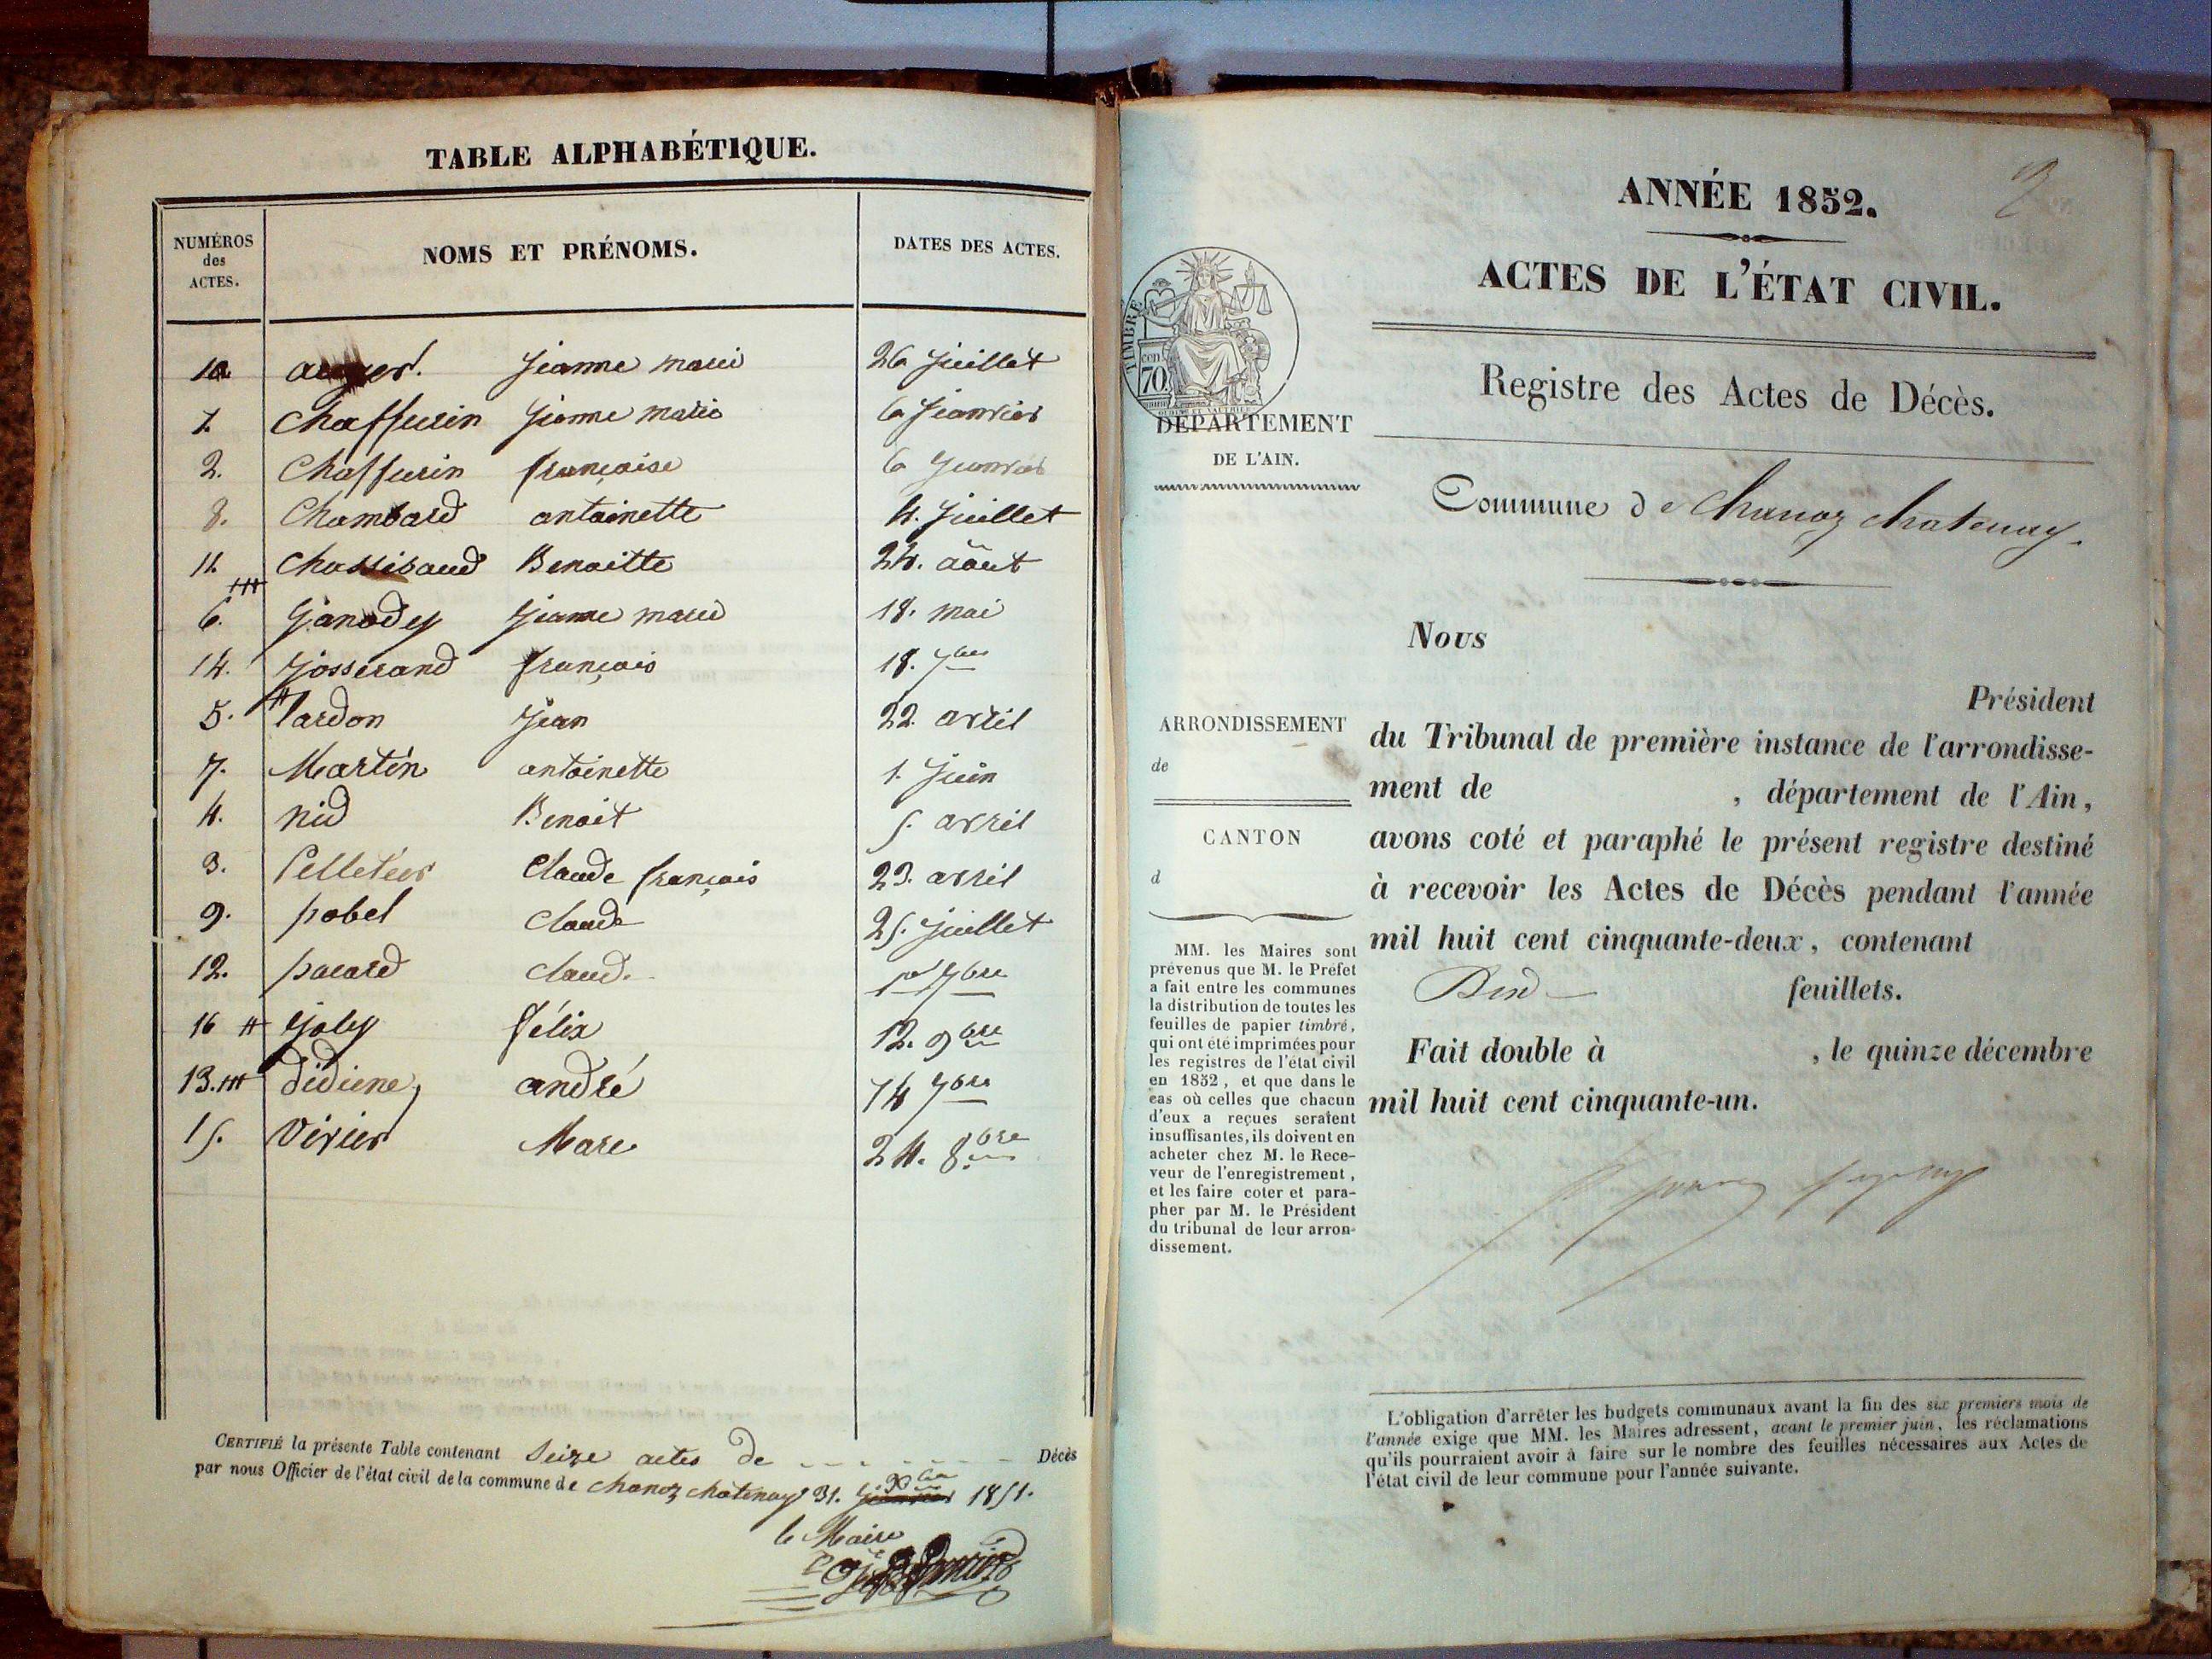 TABLE ALPHABÉTIQUE.
NUMÉROS des ACTES. NOMS ET PRÉNOMS. DATES DES ACTES.
10 auger. Jeanne marie 26 Juillet
1. Chaffurin Jeanne marie 6 Jeanvier
2. Chaffurin françoise 6 Jeanvier
8. Chambard antoinette 4. Juillet
11. Chassibaud Benoitte 24. aôut
6. Janodey Jeanne marie 18. mai
14. Josserand françois 18. 7bre
5. lardon Jean 22. avril
7. Martin antoinette 1. Juin
4. nid Benoit 5. avril
3. Pelletier Claude françois 23. avril
9. pobel Claude 25. Juillet
12. pacard Claude 1er 7bre
16 Joly félix 12. 9bre
13. didiene, andré 14 7bre
15. Virier Marc 24. 8bre
CERTIFIÉ la présente Table contenant Seize actes de Décès
par nous Officier de l'état civil de la commune de chanoz châtenay 31. Xbre 1851.
le Maire
2
ANNÉE 1852.
ACTES DE L'ÉTAT CIVIL.
Registre des Actes de Décès.
Commune de Chanoz chatenay.
TIMBRE
70
DÉPARTEMENT
DE L'AIN.
ARRONDISSEMENT
de
CANTON
d
MM. les Maires sont
prévenus que M. le Préfet
a fait entre les communes
la distribution de toutes les
feuilles de papier timbré,
qui ont été imprimées pour
les registres de l'état civil
en 1852, et que dans le
cas où celles que chacun
d'eux a reçues seraient
insuffisantes, ils doivent en
acheter chez M. le Rece-
veur de l'enregistrement,
et les faire coter et para-
pher par M. le Président
du tribunal de leur arron-
dissement.
Nous
Président
du Tribunal de première instance de l'arrondisse-
ment de , département de l'Ain,
avons coté et paraphé le présent registre destiné
à recevoir les Actes de Décès pendant l'année
mil huit cent cinquante-deux, contenant
feuillets.
Fait double à , le quinze décembre
mil huit cent cinquante-un.
L'obligation d'arrêter les budgets communaux avant la fin des six premiers mois de
l'année exige que MM. les Maires adressent, avant le premier juin, les réclamations
qu'ils pourraient avoir à faire sur le nombre des feuilles nécessaires aux Actes de
l'état civil de leur commune pour l'année suivante.